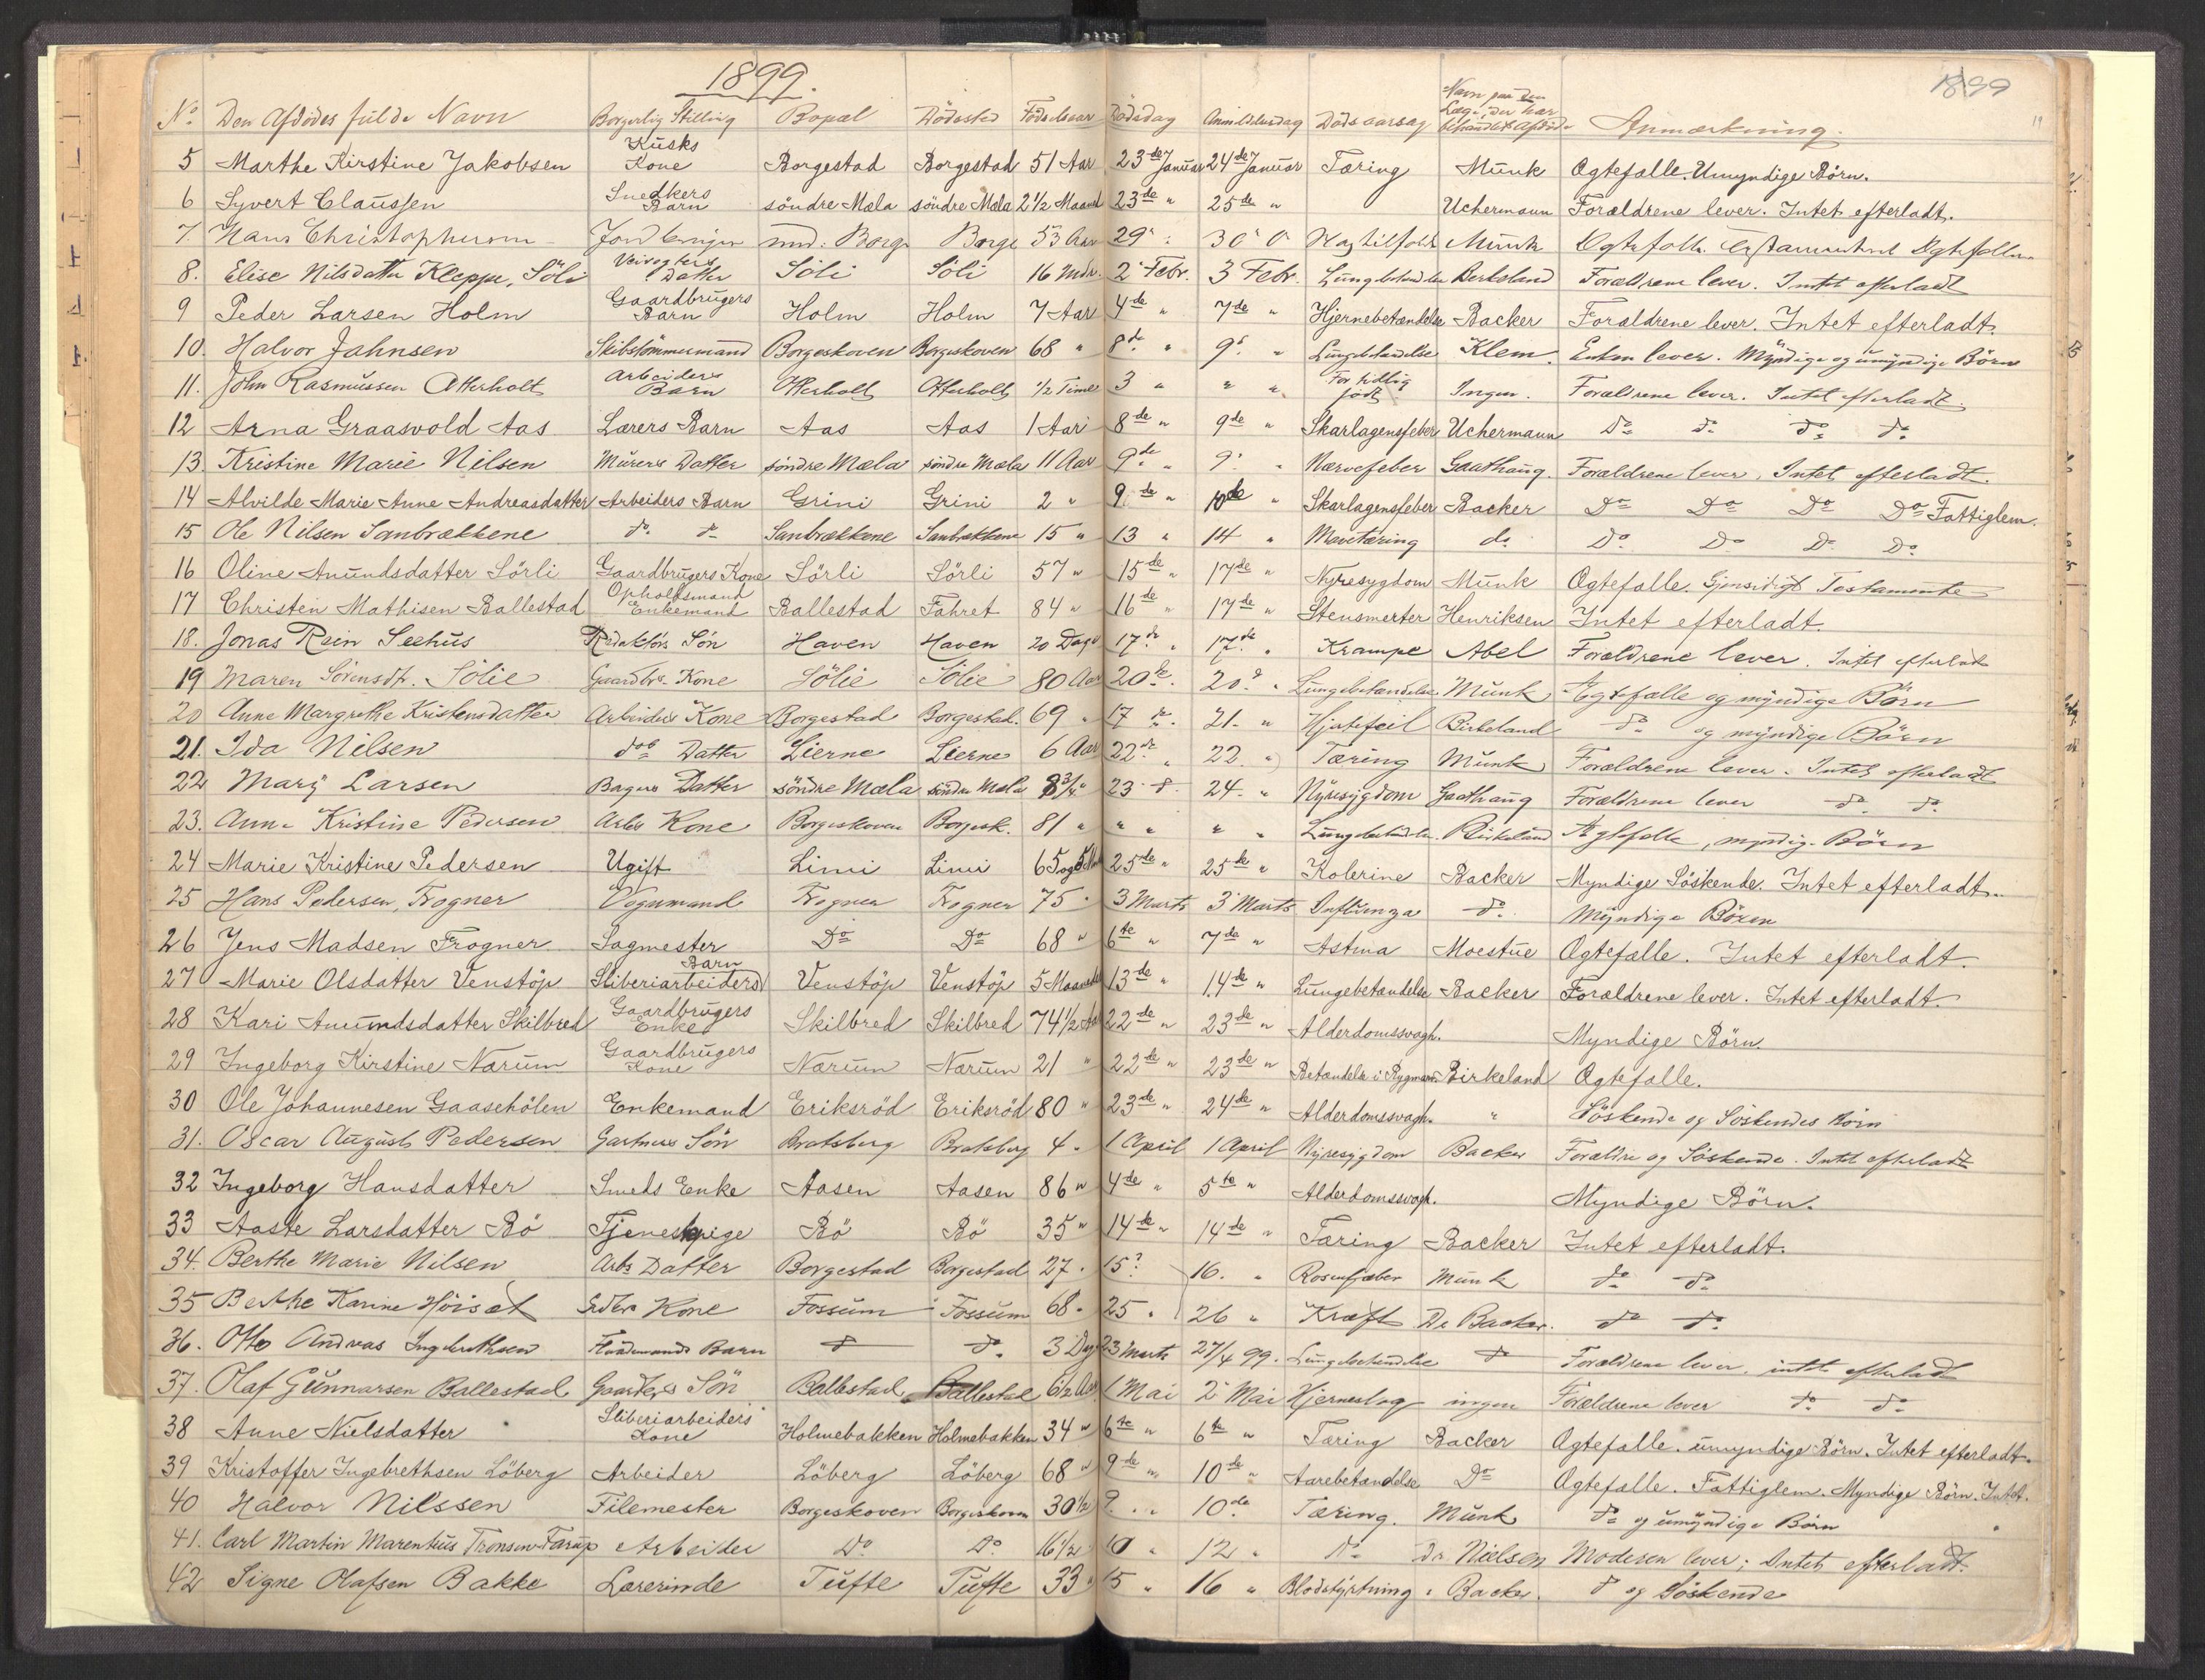 1899.
1899
11
No Den Afdödes fulde Navn Borgerlig Stilling Bopæl Dödssted Födselsaar Dödsdag Anmeldelsesdag Dödsaarsag Navn paa den Læge, der har behandlet Afdöde Anmærkning.
5 Marthe Kirstine Jakobsen Kusks Kone Borgestad Borgestad 51 Aar 23de Januar 24de Januar Tæring Munk Ægtefælle. Umyndige Börn.
6 Syvert Claussen Snedkers Barn söndre Mæla söndre Mæla 2 1/2 Maaned 23de " 25de " Uchermann Forældrene lever. Intet efterladt.
7. Hans Christophersen Borge Borge 53 Aar 29 " 30 " Munk Ægtefælle.
8. Elise Nilsdatter Kleppe, Söli Veivogters Datter Söli Söli 16 Mdr. 2 Febr. 3 Febr. Lungebetændelse Birkeland Forældrene lever. Intet efterladt
9 Peder Larsen Holm Gaardbrugers Barn Holm Holm 7 Aar 4de " 7de " Hjernebetændelse Backer Forældrene lever. Intet efterladt.
10. Halvor Jahnsen Skibstömmermand Borgeskoven Borgeskoven 68 " 8de " 9de " Lungebetændelse Klem. Enken lever. Myndige og umyndige Börn
11. John Rasmussen Otterholt Arbeiders Barn Otterholt Otterholt 1/2 Time 3 " " " For tidlig födt Ingen. Forældrene lever. Intet efterladt.
12 Arna Graasvold Aas Lærers Barn Aas Aas 1 Aar 8de " 9de " Skarlagensfeber Uchermann Do Do Do Do
13. Kristine Marie Nilsen Murers Datter söndre Mæla söndre Mæla 11 Aar 9de " 9 " Nervefeber Gaathaug. Forældrene lever. Intet efterladt.
14 Alvilde Marie Anne Andreasdatter Arbeiders Barn Grini Grini 2 " 9de " 10de " Skarlagensfeber Backer Do Do Do Do Fattiglem.
15 Ole Nilsen Sanbrækkene do do Sanbrækkene Sanbrækkene 15 " 13 " 14 " Mavetæring do. Do Do Do Do
16 Oline Amundsdatter Sörli Gaardbrugers Kone Sörli Sörli 57 " 15de " 17de " Nyresygdom Munk Ægtefælle. Gjensidigt Testamente
17 Christen Mathisen Ballestad Opholdsmand Enkemand Ballestad Fahret 84 " 16de " 17de " Stensmerter Henriksen Intet efterladt.
18. Jonas Rein Seehus Redaktörs Sön Haven Haven 20 Dage 17de " 17de " Krampe Abel Forældrene lever. Intet efterladt
19 Maren Sörensdt. Sölie Gaardbr. Kone Sölie Sölie 80 Aar 20de. 20de " Lungebetændelse Munk Ægtefælle og myndige Börn
20 Anne Margrethe Kristensdatter Arbeiders Kone Borgestad Borgestad. 69 " 17de. 21. " Hjertefeil Birkeland do og myndige Börn
21. Ida Nilsen do Datter Lierne Lierne 6 Aar 22de " 22 " Tæring Munk Forældrene lever. Intet efterladt
22 Mary Larsen Bagers Datter söndre Mæla söndre Mæla 8 3/4 " 23 do. 24. " Nyresygdom Gaathaug Forældrene lever do do.
23. Anne Kristine Pedersen Arbs Kone Borgeskoven Borgesk. 81 " " " " " Lungebetændelse. Birkeland Ægtefælle, myndig. Börn
24 Marie Kristine Pedersen Ugift Limi Limi 65 og 5 Mdr 25de " 25de " Kolerine Backer Myndige Söskende. Intet efterladt.
25 Hans Pedersen, Frogner Vognmand Frogner Frogner 75 " 3 Marts 3 Marts Influenza do. Myndige Börn
26 Jens Madsen Frogner Sagmester Do Do 68 " 6te " 7de " Astma Moestue Ægtefælle. Intet efterladt.
27 Marie Olsdatter Venstöp Sliberiarbeiders Barn Venstöp Venstöp 5 Maaneder 13de " 14de " Lungebetændelse Backer Forældrene lever. Intet efterladt.
28 Kari Amundsdatter Skilbred Gaardbrugers Enke Skilbred Skilbred 74 1/2 Aar 22de " 23de " Alderdomssvagh. Myndige Börn.
29 Ingeborg Kirstine Narum Gaardbrugers Kone Narum Narum 21 " 22de " 23de " Betændelse i Rygmarv Birkeland Ægtefælle.
30 Ole Johannesen Gaasehölen Enkemand Eriksröd Eriksröd 80 " 23de " 24de " Alderdomssvagh. " Söskende og Söskendes Börn
31. Oscar August Pedersen Gartners Sön Bratsberg Bratsberg 4 " 1 April 1 April Nyresygdom Backer Forældre og Söskende. Intet efterladt
32 Ingeborg Hansdatter Smeds Enke Aasen Aasen 86 " 4de " 5te " Alderdomssvagh. Myndige Börn.
33 Aaste Larsdatter Bö Tjenestepige Bö Bö 35 " 14de " 14de " Tæring Backer Intet efterladt.
34. Berthe Marie Nilsen Arbs Datter Borgestad Borgestad 27. 15? 16. " Rosenfeber Munk do do
35 Berthe Karine Höiset Kone Fossum Fossum 68. 25 " 26 " Kræft Dr Backer. do do.
36. Otto Andreas Ingebrethsen Barn do do. 3 Dag 23 Marts 27/4 99. Lungebetændelse do Forældrene lever, intet efterladt
37. Olaf Gunnarsen Ballestad Gaardbrs Sön Ballestad Ballestad 6 1/2 Aar 1 Mai 2 Mai Hjerneslag ingen Forældrene lever do. do.
38 Anne Nielsdatter Sliberiarbeiders Kone Holmebakken Holmebakken 34 " 6te " 6te " Tæring Backer Ægtefælle. umyndige Börn. Intet efterladt.
39 Kristoffer Ingebrethsen Löberg Arbeider Löberg Löberg 68 " 9de " 10de " Aarebetændelse Do Ægtefælle. Fattiglem. Myndige Börn. Intet.
40 Halvor Nilssen Filemester Borgeskoven Borgeskoven 30 1/2 9. " 10de Tæring. Munk do og umyndige Börn
41. Carl Martin Marentius Tronsen-Farup Arbeider Do. Do. 16 1/2 10 " 12 " do Dr Nielsen Moderen lever; Intet efterladt.
42 Signe Olafsen Bakke Lærerinde Tufte Tufte 33 " 15 " 16 " Blodstyrtning " Backer. do og Söskende